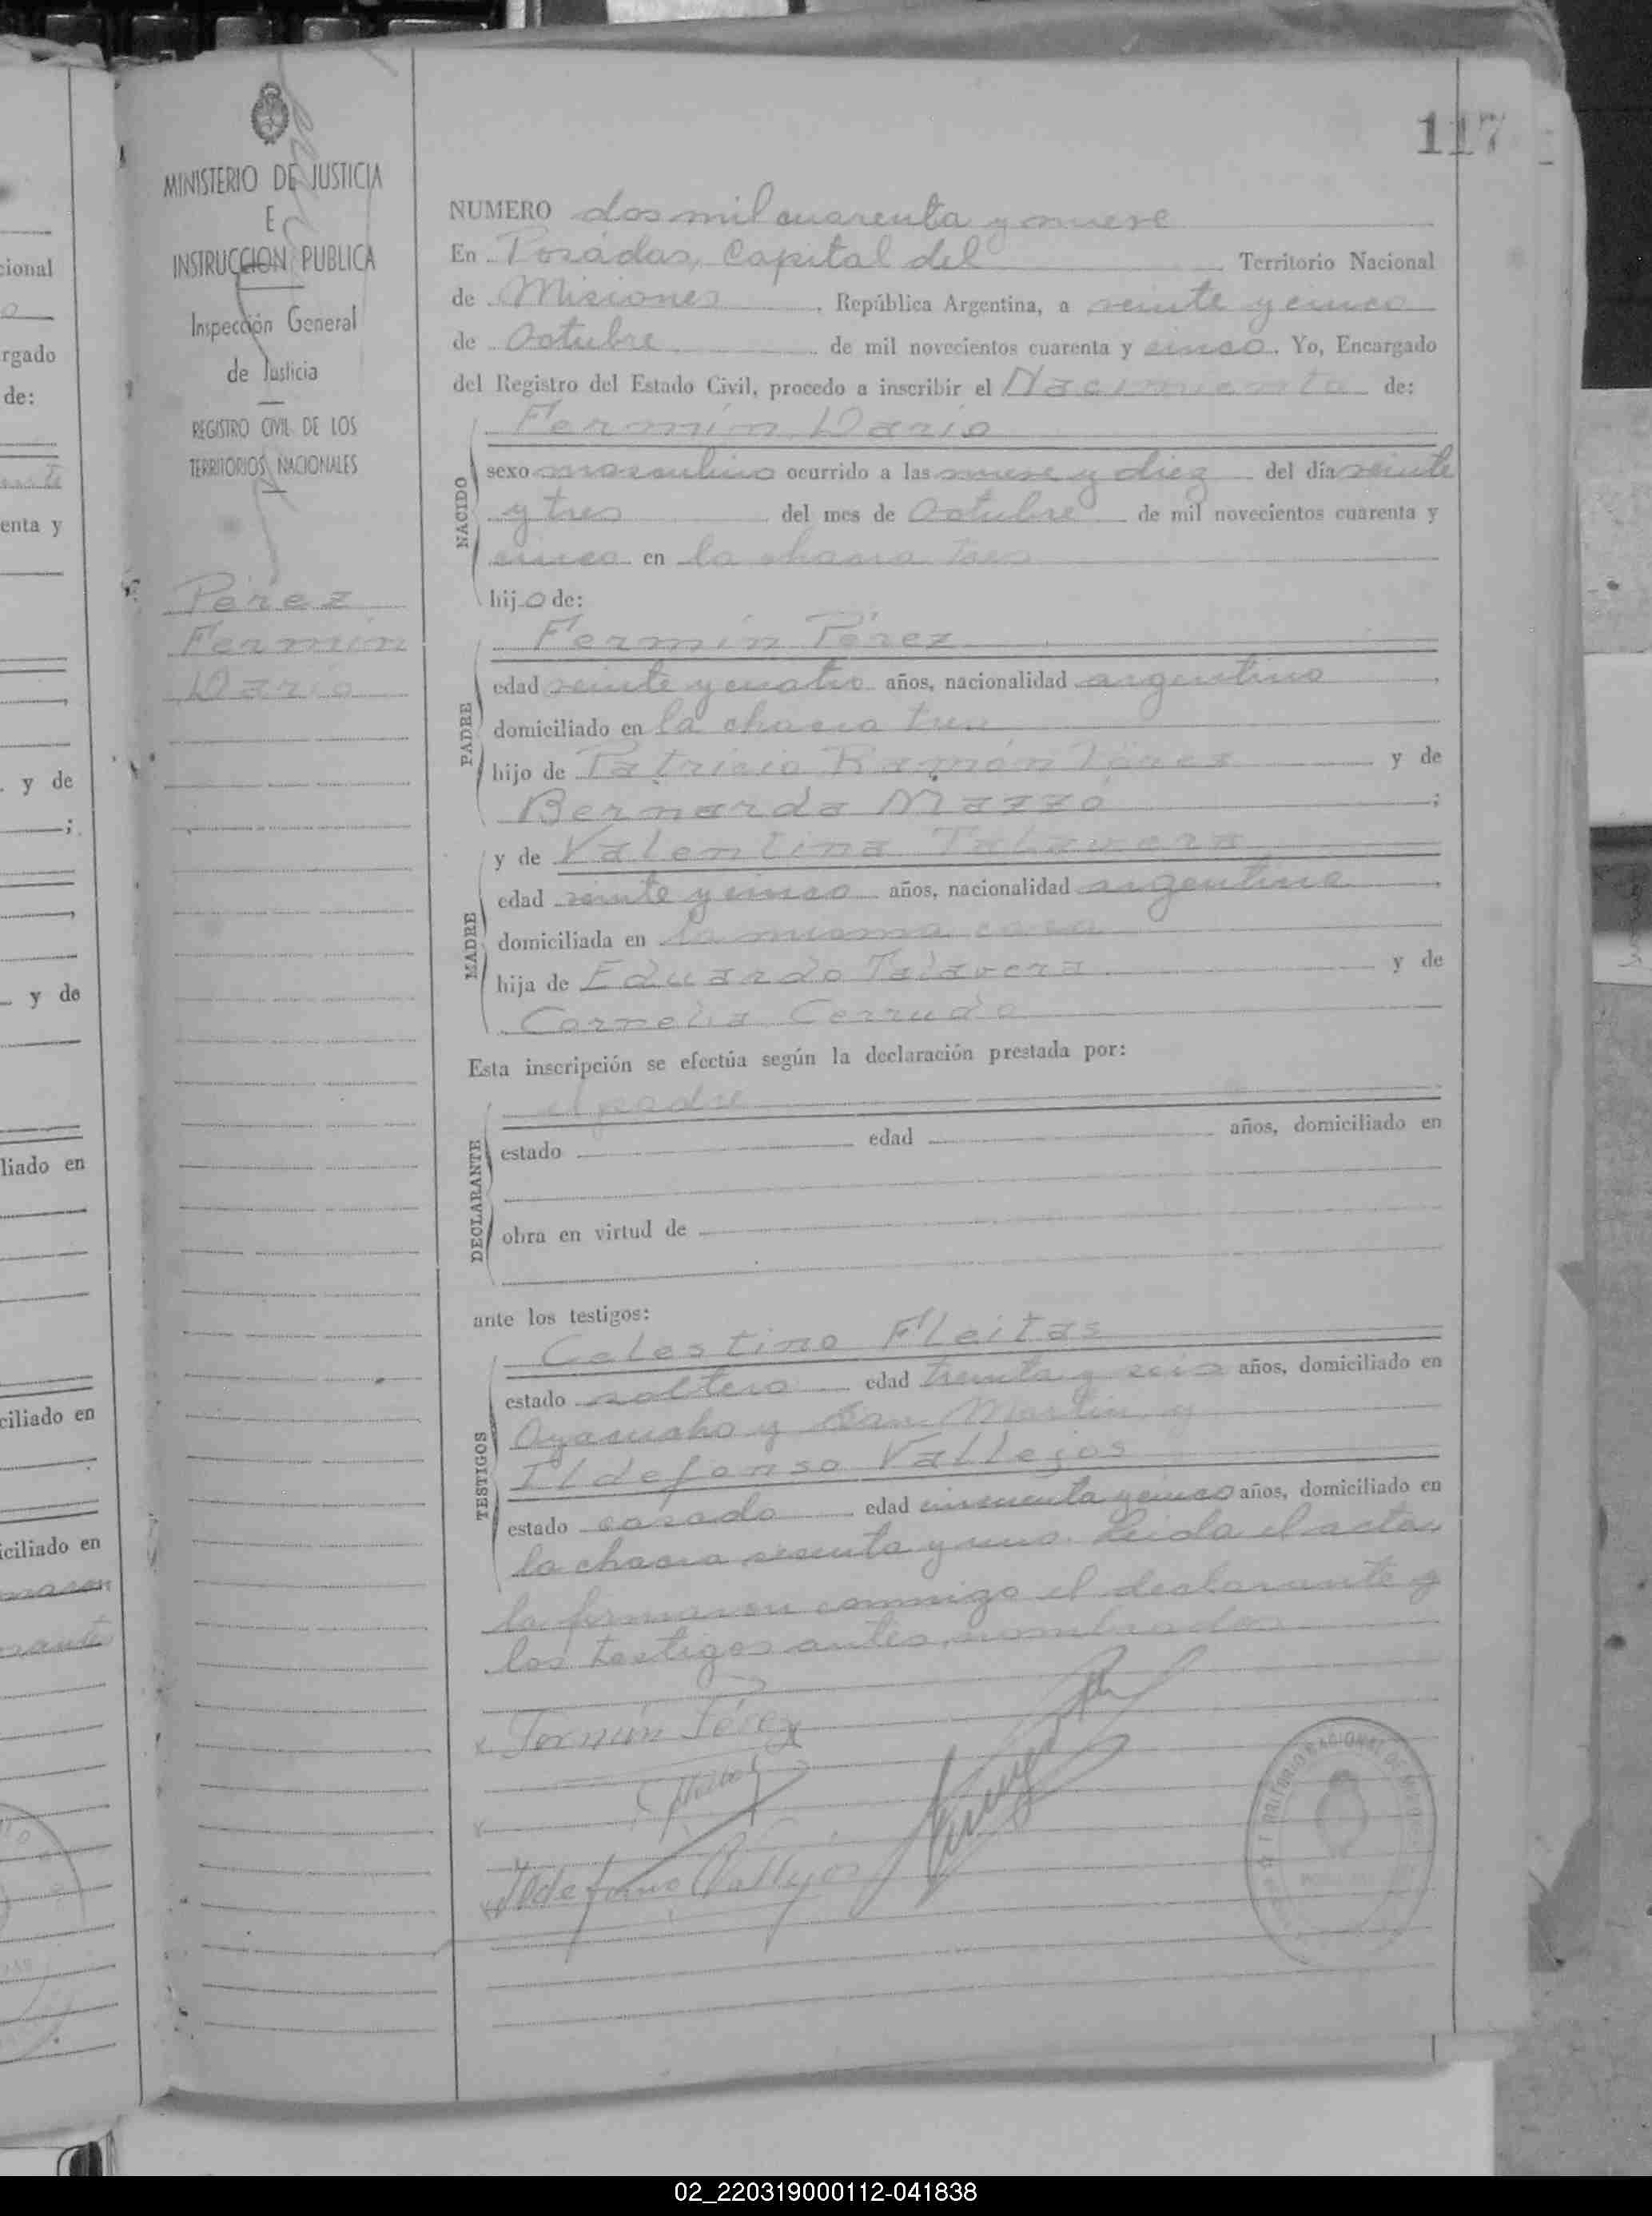 117
MINISTERIO DE JUSTICIA
E
INSTRUCCION PUBLICA
Inspección General
de Justicia
REGISTRO CIVIL DE LOS
TERRITORIOS NACIONALES
Pérez
Fermín
Darío
NUMERO dos mil cuarenta y nueve
En Posadas, Capital del Territorio Nacional
de Misiones, República Argentina, a veinte y cinco
de Octubre de mil novecientos cuarenta y cinco. Yo, Encargado
del Registro del Estado Civil, procedo a inscribir el Nacimiento de:
NACIDO
Fermín Darío
sexo masculino ocurrido a las nueve y diez del día veinte
y tres del mes de Octubre de mil novecientos cuarenta y
cinco en la chacra tres
hijo de:
PADRE
Fermín Pérez
edad veinte y cuatro años, nacionalidad argentino,
domiciliado en la chacra tres
hijo de Patricio Ramón Pérez y de
Bernarda Mazzó;
MADRE
y de Valentina Talavera
edad veinte y cinco años, nacionalidad argentina,
domiciliada en la misma casa
hija de Eduardo Talavera y de
Cornelia Cerrudo
Esta inscripción se efectúa según la declaración prestada por:
DECLARANTE
el padre
estado edad años, domiciliado en
obra en virtud de
ante los testigos:
TESTIGOS
Celestino Fleitas
estado soltero edad treinta y seis años, domiciliado en
Ayacucho y San Martín y
Ildefonso Vallejos
estado casado edad cincuenta y cinco años, domiciliado en
la chacra sesenta y uno. Leída el acta,
la firmaron conmigo el declarante y
los testigos antes nombrados
Fermín Pérez
Ildefonso Vallejos
TERRITORIO NACIONAL DE MISIONES
cional
rgado
de:
enta y
y de
;
y de
liado en
ciliado en
iciliado en
02_220319000112-041838